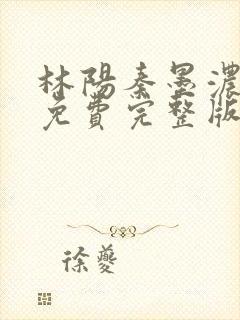 林陽秦墨濃
免費完整版
徐夔